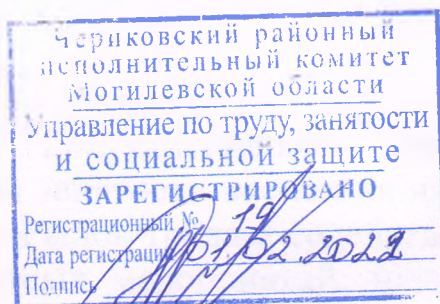 Чериковский районный
исполнительный комитет
Могилевской области
Управление по труду, занятости
и социальной защите
ЗАРЕГИСТРИРОВАНО
Регистрационный № 19
Дата регистрации 01.02.2022
Подпись